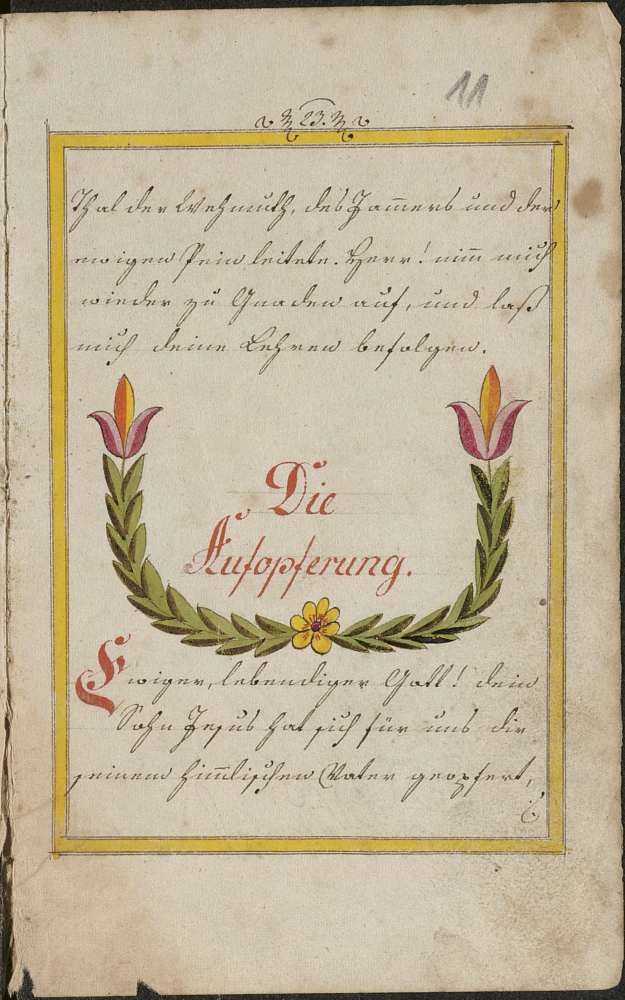 11
23.
Thal der Wehmuth, des Jam̅ers und der
ewigen Pein leitete. Herr! nim̅ mich
wieder zu Gnaden auf, und laß
mich deine Lehren befolgen.
Die
Aufopferung.
Ewiger, lebendiger Gott! dein
Sohn Jesus hat sich für uns dir
seinem him̅lischen Vater geopfert,